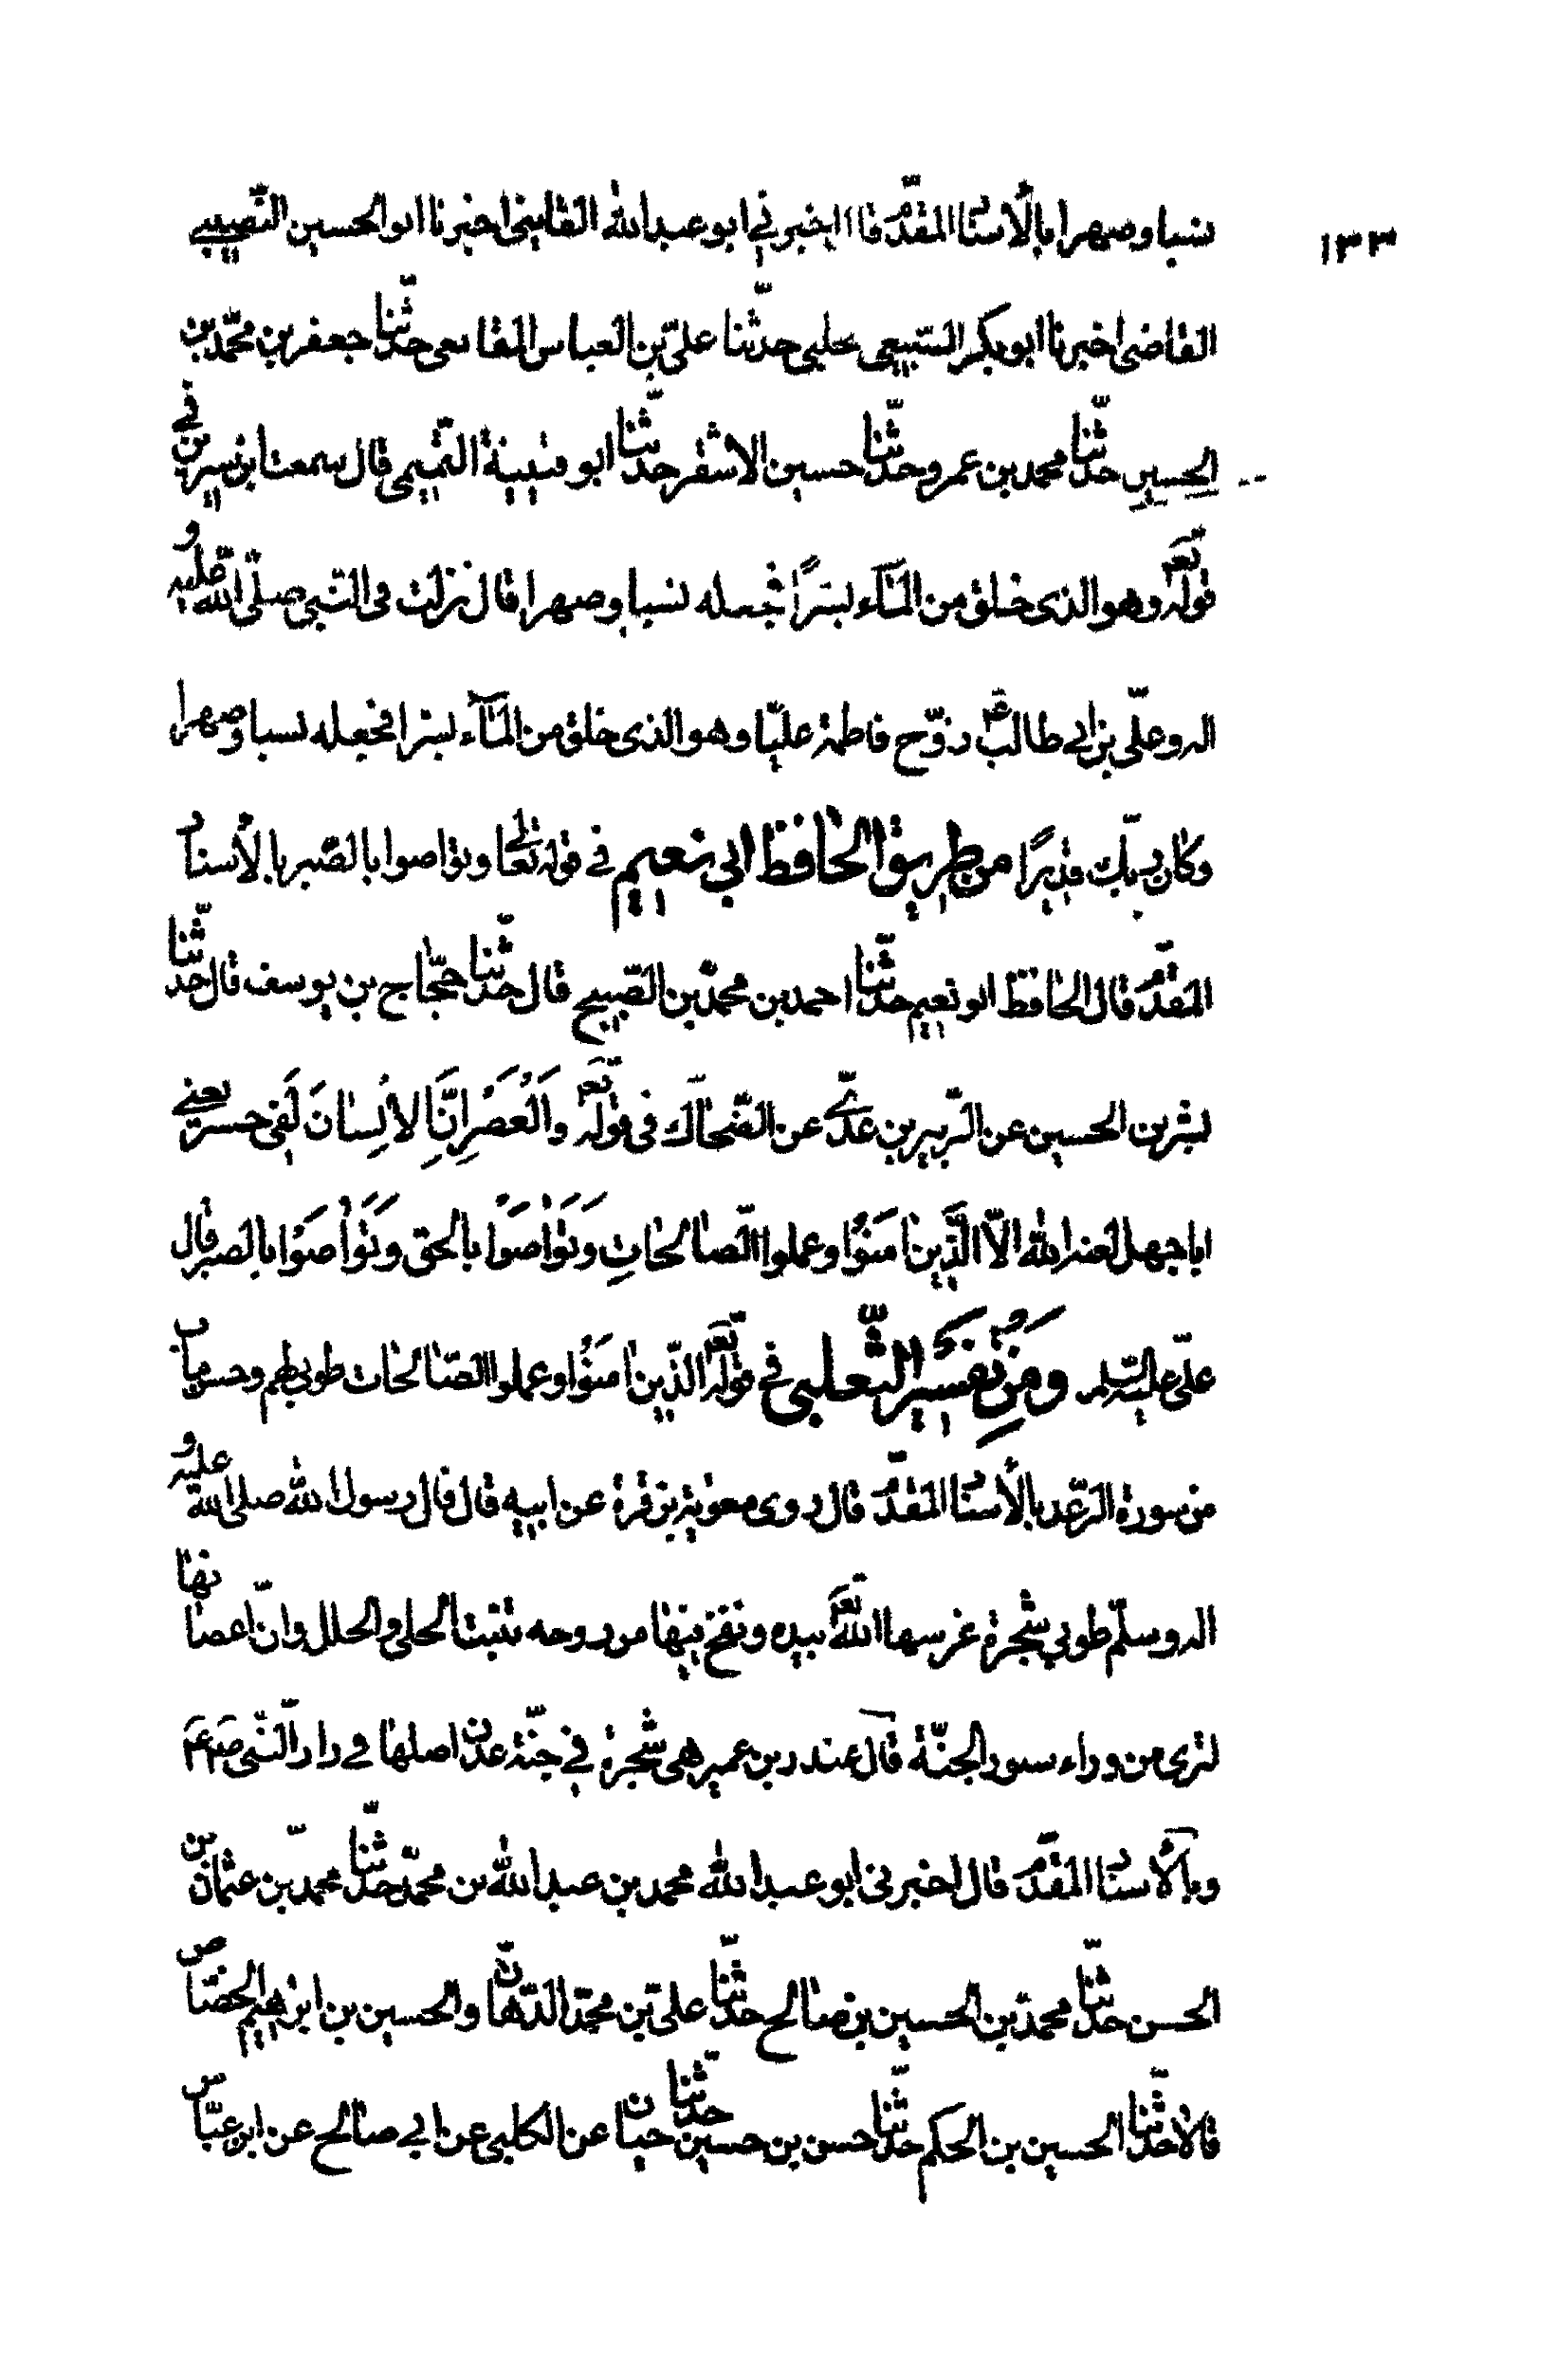 ١٣٣
نسبا وصهرا بالأسناد المقدّم قال اخبرني ابو عبد الله القايني اخبرنا ابو الحسين النّصيبي
القاضى اخبرنا ابو بكر السّبيعى بحلبى حدّثنا علىّ بن العباس المقانعى حدّثنا جعفر بن محمّد بن
الحسين حدّثنا محمد بن عمرو حدّثنا حسين الاشقر حدّثنا ابو قتيبة التّميمى قال سمعت ابن سيرين في
قوله تعم وهو الذى خلق من المآء بشرًا فجعله نسبا وصهرا قال نزلت فى النّبى صلّى الله عليه و
اله وعلّى بن ابي طالب عم زوّج فاطمة عليّا وهو الذى خلق من المآء بشرا فجعله نسبا وصهرا
وكان ربّك قديرًا من طريق الحافظ ابي نعيم في قوله تعالى وتواصوا بالصّبر بالأسناد
المقدّم قال الحافظ ابو نعيم حدّثنا احمد بن محمّد بن الصّبيح قال حدّثنا حجّاج بن يوسف قال حدّثنا
بشر بن الحسين عن الزّبير بن عدّي عن الضّحاك فى قوله تعم وَالْعَصْرِ اِنَّ الاِنسانَ لَفى خسر يعنى
ابا جهل لعنه الله الاّ الَّذين امَنوُا وعملوا الصّالحاتِ وَتَواْصَوْا بالحق وَتَواْصَوْا بالصبر قال
علىّ عليه السّلم وَمِنْ تَفسير الثّعلبى فى قوله تعم الذّين امَنوُا وعملوا الصّالحات طوبى لهم وحسن ماب
من سورة الرّعد بالأسناد المقدّم قال روى معوية بن قرة عن ابيه قال قال رسول الله صلى الله عليه و
اله وسلّم طوبي شجرة غرسها الله تعم بيده ونفخ فيها من روحه تنبت الحلى والحلل وانّ اغصانها
لترى من وراء سور الجنّة قال عبيد بن عمير هى شجرة في جنّة عدن اصلها في دار النّبى صم عم
وبالأسناد المقدّم قال اخبرنى ابو عبد الله محمد بن عبد الله بن محمّد حدّثنا محمد بن عثمان بن
الحسن حدّثنا محمد بن الحسين بن صالح حدّثنا علىّ بن محمّد الدّهّان والحسين بن ابرهيم الجصّاص
قالا حدّثنا الحسين بن الحكم حدّثنا حسن بن حسين حدّثنا حبّان عن الكلبى عن ابي صالح عن ابن عبّاس